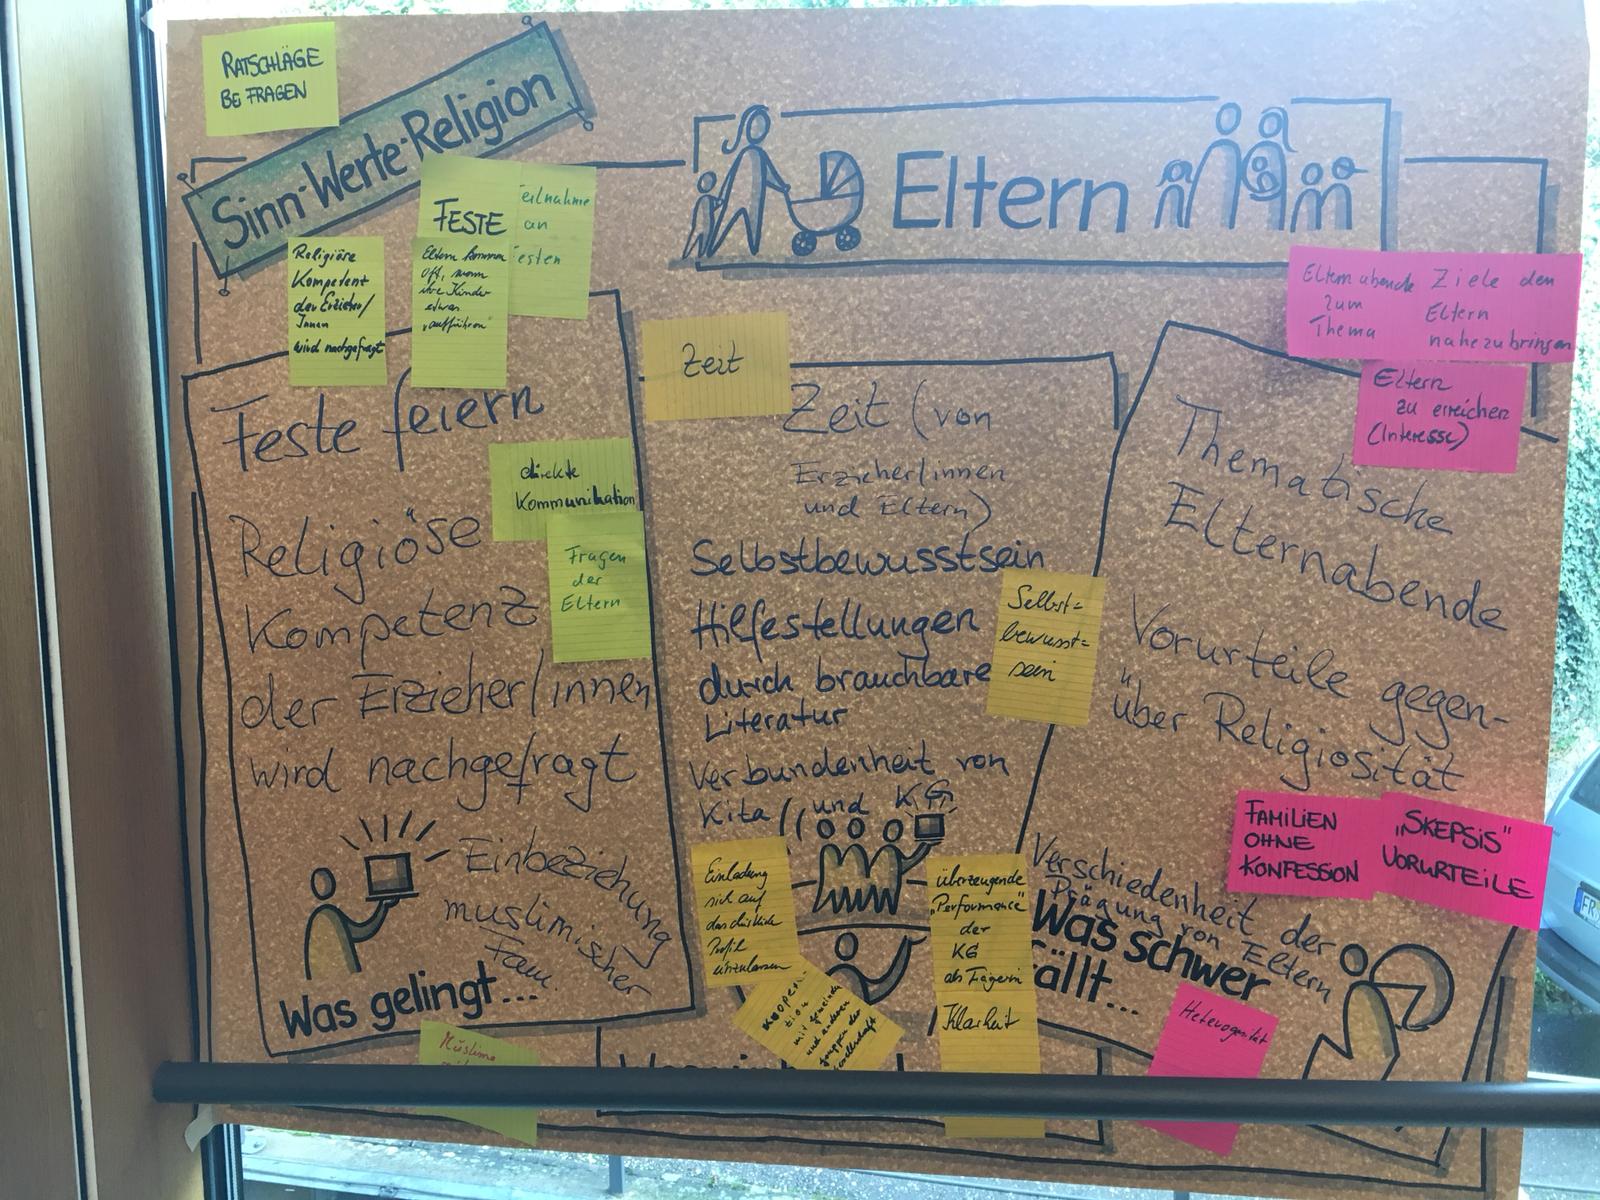 RATSCHLÄGE
BEFRAGEN
Sinn-Werte-Religion
Eltern
FESTE
eilnahme
an
esten
Religiöse
Kompetenz
der Erzieher/
Innen
wird nachgefragt
Eltern kommen
oft, wenn
ihre Kinder
etwas
"aufführen"
Feste feiern
direkte
Kommunikation
Fragen
der
Eltern
Religiöse
Kompetenz
der Erzieher/innen
wird nachgefragt
Einbeziehung
muslimischer
Fam.
Was gelingt...
Muslime
Zeit
Zeit (von
Erzieher/innen
und Eltern)
Selbstbewusstsein
Hilfestellungen
durch brauchbare
Literatur
Verbundenheit von
Kita und KG
Selbst=
bewusst=
sein
Einladung
sich auf
das christliche
Profil
einzulassen
Koopera-
tion
mit Gemeinde
und anderen
Gruppen der
Gesellschaft
überzeugende
"Performance"
der
KG
als Trägerin
Klarheit
Elternabende
zum
Thema
Ziele den
Eltern
nahezubringen
Eltern
zu erreichen
(Interesse)
Thematische
Elternabende
Vorurteile gegen-
über Religiosität
FAMILIEN
OHNE
KONFESSION
"SKEPSIS"
VORURTEILE
Verschiedenheit der
Prägung von Eltern
Was schwer
fällt...
Heterogenität